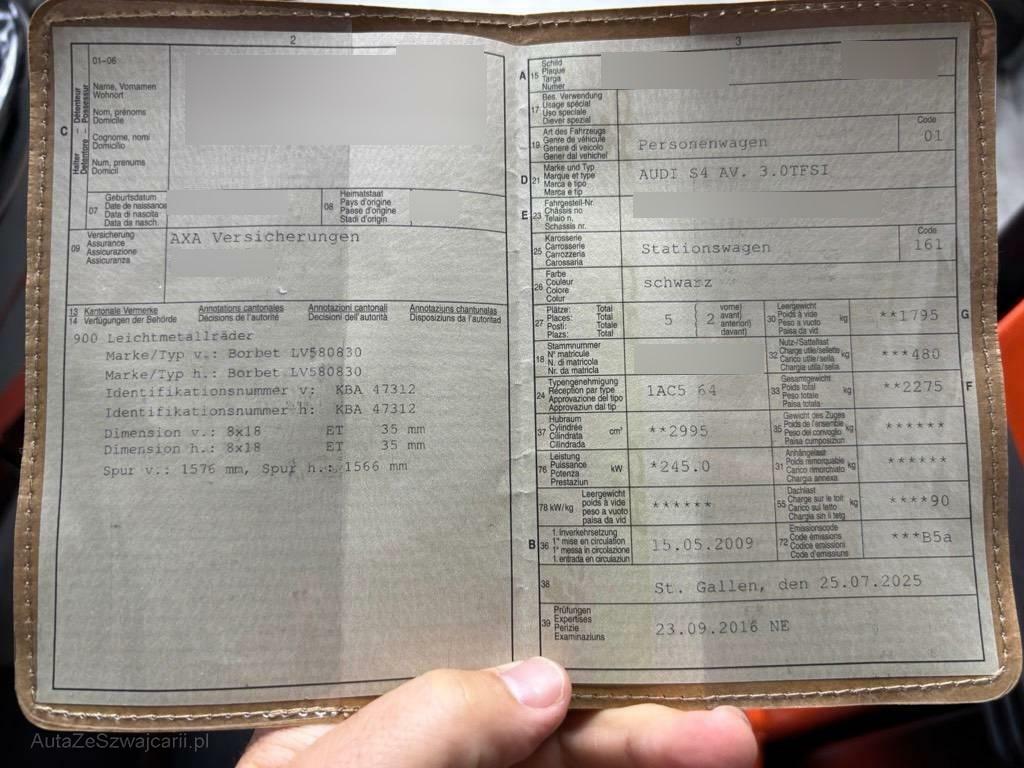 2
01-06
Name, Vornamen
Wohnort
Nom, prénoms
Domicile
Cognome, nomi
Domicilio
Num, prenums
Domicil
C
Halter – Détenteur
Detentore – Possessur
07
Geburtsdatum
Date de naissance
Data di nascita
Data da nasch.
08
Heimatstaat
Pays d'origine
Paese d'origine
Stadi d'origin
09
Versicherung
Assurance
Assicurazione
Assicuranza
AXA Versicherungen
13 Kantonale Vermerke Annotations cantonales Annotazioni cantonali Annotaziuns chantunalas
14 Verfügungen der Behörde Décisions de l'autorité Decisioni dell'autorità Disposiziuns da l'autoritad
900 Leichtmetallräder
Marke/Typ v.: Borbet LV580830
Marke/Typ h.: Borbet LV580830
Identifikationsnummer v: KBA 47312
Identifikationsnummer h: KBA 47312
Dimension v.: 8x18 ET 35 mm
Dimension h.: 8x18 ET 35 mm
Spur v.: 1576 mm, Spur h.: 1566 mm
3
A
15
Schild
Plaque
Targa
Numer
17
Bes. Verwendung
Usage spécial
Uso speciale
Diever spezial
19
Art des Fahrzeugs
Genre de véhicule
Genere di veicolo
Gener dal vehichel
Personenwagen
Code
01
D
21
Marke und Typ
Marque et type
Marca e tipo
Marca e tip
AUDI S4 AV. 3.0TFSI
E
23
Fahrgestell-Nr.
Châssis no
Telaio n.
Schassis nr.
25
Karosserie
Carrosserie
Carrozzeria
Carossaria
Stationswagen
Code
161
26
Farbe
Couleur
Colore
Colur
schwarz
27
Plätze: Total
Places: Total
Posti: Totale
Plazs: Total
5
2
vorne)
avant)
anteriori)
davant)
30
Leergewicht
Poids à vide
Peso a vuoto
Paisa da vid
kg
**1795
G
18
Stammnummer
N° matricule
N. di matricola
Nr. da matricla
32
Nutz-/Sattellast
Charge utile/sellette
Carico utile/sella
Chargia utila/sella
kg
***480
24
Typengenehmigung
Réception par type
Approvazione del tipo
Approvaziun dal tip
1AC5 64
33
Gesamtgewicht
Poids total
Peso totale
Paisa totala
kg
**2275
F
37
Hubraum
Cylindrée
Cilindrata
Cilindrada
cm³
**2995
35
Gewicht des Zuges
Poids de l'ensemble
Peso del convoglio
Paisa cumposiziun
kg
******
76
Leistung
Puissance
Potenza
Prestaziun
kW
*245.0
31
Anhängelast
Poids remorquable
Carico rimorchiato
Chargia annexa
kg
******
78 kW/kg
Leergewicht
poids à vide
peso a vuoto
paisa da vid
******
55
Dachlast
Charge sur le toit
Carico sul tetto
Chargia sin il tetg
kg
****90
B
36
1. Inverkehrsetzung
1re mise en circulation
1a messa in circolazione
1. entrada en circulaziun
15.05.2009
72
Emissionscode
Code émissions
Codice emissioni
Code d'emissiuns
***B5a
38
St. Gallen, den 25.07.2025
39
Prüfungen
Expertises
Perizie
Examinaziuns
23.09.2016 NE
AutaZeSzwajcarii.pl